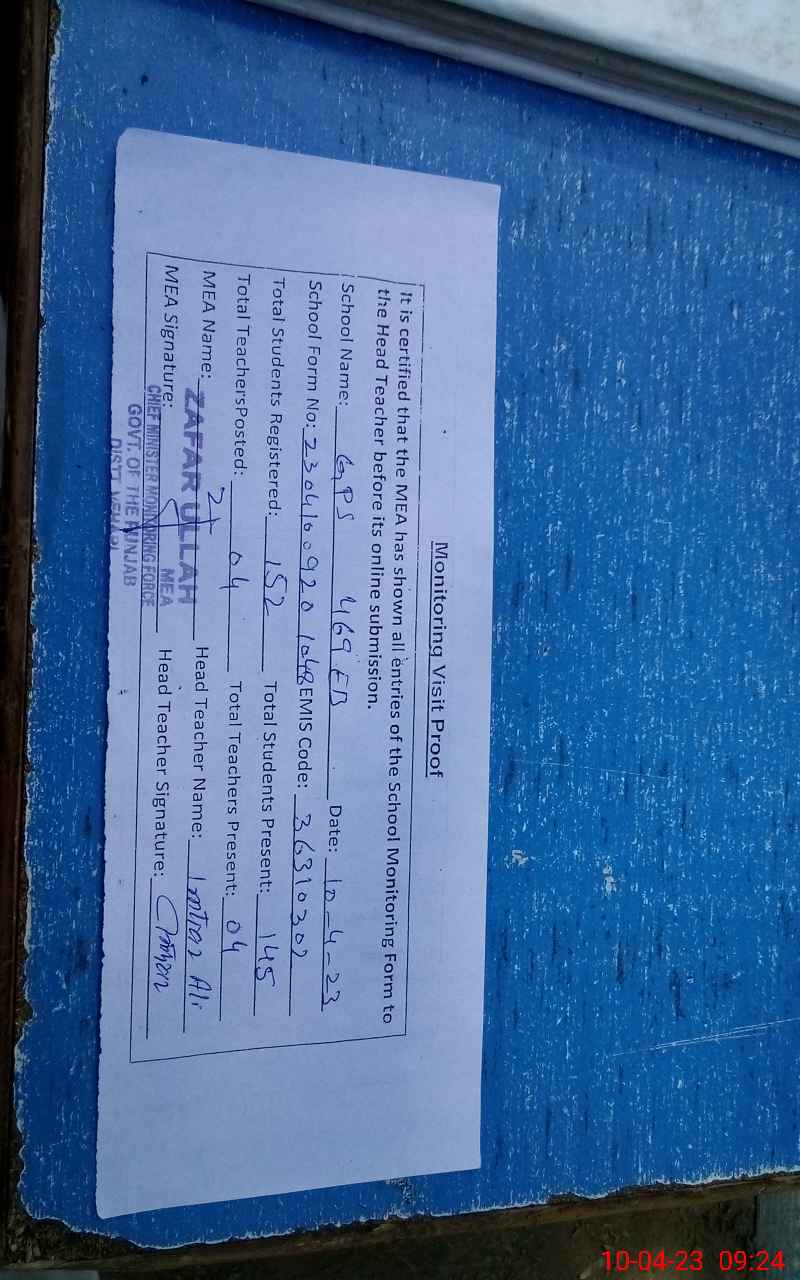 Monitoring Visit Proof
It is certified that the MEA has shown all entries of the School Monitoring Form to
the Head Teacher before its online submission.
School Name: GPS 469 EB Date: 10-4-23
School Form No: 2304100920 EMIS Code: 36310302
Total Students Registered: 152 Total Students Present: 145
Total TeachersPosted: 04 Total Teachers Present: 04
MEA Name: ZAFAR ULLAH Head Teacher Name: Ali
MEA Signature: MEA Head Teacher Signature:
CHIEF MINISTER MONITORING FORCE
GOVT. OF THE PUNJAB
DISTT. VEHARI
10-04-23 09:24